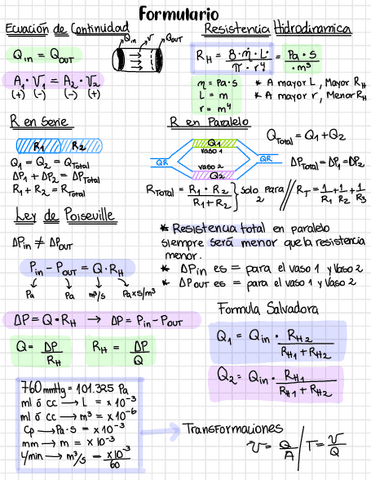 Formulario
Ecuación de Continuidad
Q_in = Q_out
Q_in V Q_out
A₁·V₁ = A₂·V₂
(+) (-) (-) (+)
Resistencia Hidrodinamica
R_H = 8·η·L· / π·r⁴ = Pa·s / ·m³
η = Pa·s
L = m
r = m⁴
* A mayor L, Mayor R_H
* A mayor r, Menor R_H
R en Serie
R₁ R₂
Q₁ = Q₂ = Q_Total
ΔP₁ + ΔP₂ = ΔP_Total
R₁ + R₂ = R_Total
R en Paralelo
Q₁
QR vaso 1 QR
vaso 2
Q₂
Q_Total = Q₁ + Q₂
ΔP_Total = ΔP₁ = ΔP₂
R_Total = R₁·R₂ / R₁+R₂ } solo para 2 // R_T = 1/R₁ + 1/R₂ + 1/R₃
Ley de Poiseville
ΔP_in ≠ ΔP_out
P_in - P_out = Q·R_H
Pa Pa m³/s Pa×s/m³
ΔP = Q·R_H → ΔP = P_in - P_out
Q = ΔP / R_H R_H = ΔP / Q
* Resistencia total en paralelo
siempre será menor que la resistencia
menor.
* ΔP_in es = para el vaso 1 y vaso 2
* ΔP out es = para el vaso 1 y vaso 2
Formula Salvadora
Q₁ = Q_in · R_H2 / R_H1 + R_H2
Q₂ = Q_in · R_H1 / R_H1 + R_H2
760 mmHg = 101.325 Pa
ml ó cc → L = x 10⁻³
ml ó cc → m³ = x 10⁻⁶
Cp → Pa·s = x 10⁻³
mm → m = x 10⁻³
L/min → m³/s = x10⁻³ / 60
Transformaciones
V = Q / A / T = V / Q